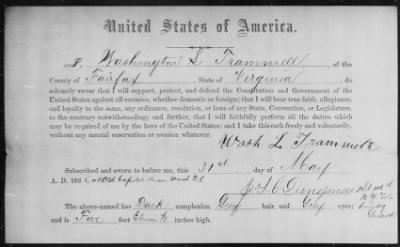 United States of America.
I, Washington L Trammell of the
County of Fairfax, State of Virginia, do
solemnly swear that I will support, protect, and defend the Constitution and Government of the
United States against all enemies, whether domestic or foreign; that I will bear true faith, allegiance,
and loyalty to the same, any ordinance, resolution, or laws of any State, Convention, or Legislature,
to the contrary notwithstanding; and further, that I will faithfully perform all the duties which
may be required of me by the laws of the United States; and I take this oath freely and voluntarily,
without any mental reservation or evasion whatever.
Wash L Trammell
Subscribed and sworn to before me, this 31st day of May
A. D. 186 at Old Capitol
The above-named has Dark complexion, Grey hair, and Grey eyes;
and is Five feet Eleven inches high.